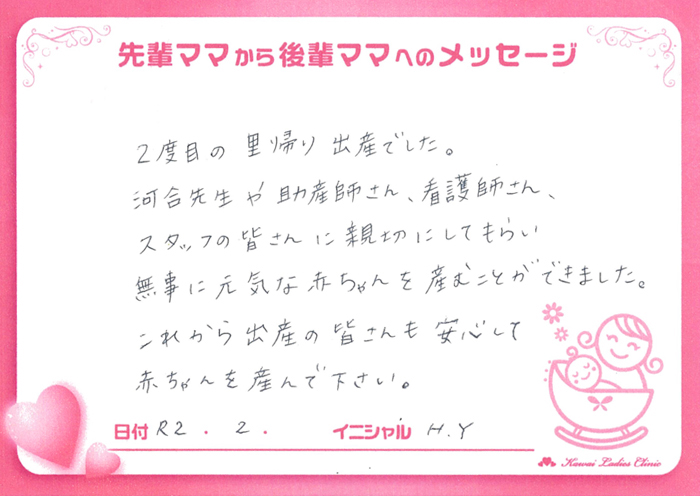 先輩ママから後輩ママへのメッセージ
2度目の里帰り出産でした。
河合先生や助産師さん、看護師さん、
スタッフの皆さんに親切にしてもらい
無事に元気な赤ちゃんを産むことができました。
これから出産の皆さんも安心して
赤ちゃんを産んで下さい。
日付 R2 . 2 . イニシャル H.Y
Kawai Ladies Clinic